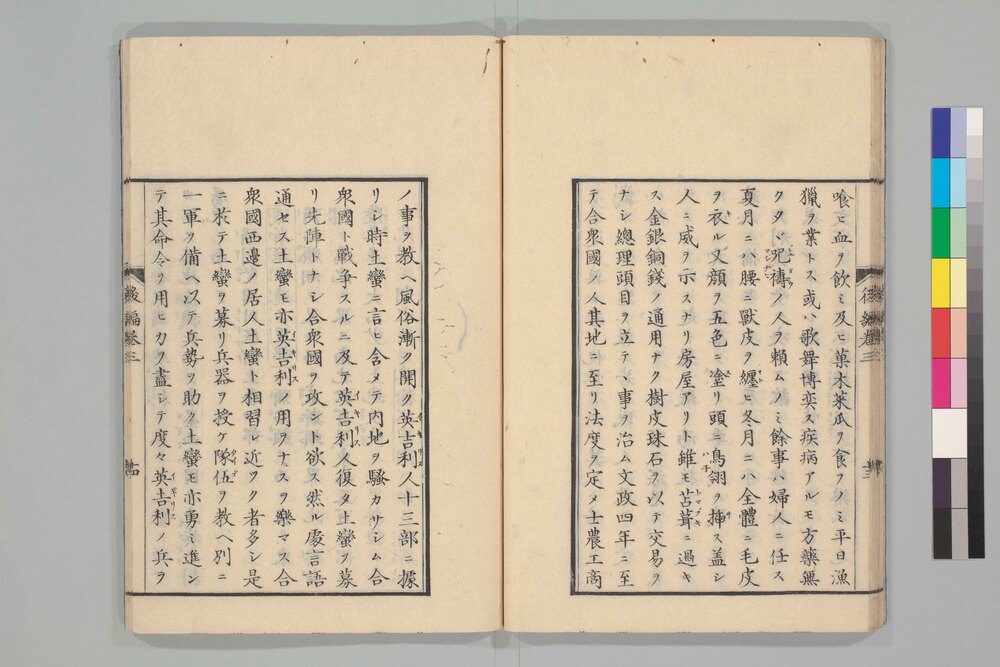 喰ヒ血ヲ飲ミ及ヒ菓木菜瓜ヲ食フノミ平日漁
獵ヲ業トス或ハ歌舞博奕ス疾病アルモ方藥無
クタヾ咒禱ノ人ヲ頼ムノミ餘事ハ婦人ニ任ス
夏月ニハ腰ニ獸皮ヲ纏ヒ冬月ニハ全體ニ毛皮
ヲ衣ル又顔ヲ五色ニ塗リ頭ニ鳥翎ヲ揷ス盖シ
人ニ威ヲ示スナリ房屋アリト雖モ苫葺ニ過キ
ス金銀銅錢ノ通用ナク樹皮珠石ヲ以テ交易ヲ
ナシ總理頭目ヲ立テヽ事ヲ治ム文政四年ニ至
テ合衆國ノ人其地ニ至リ法度ヲ定メ士農工商
ノ事ヲ教ヘ風俗漸ク開ク英吉利人十三部ニ據
リシ時土蠻ニ言ヒ含メテ内地ヲ騷カサシム合
衆國ト戰爭スルニ及テ英吉利人復タ土蠻ヲ募
リ先陣トナシ合衆國ヲ攻ント欲ス然ル處言語
通セス土蠻モ亦英吉利ノ用ヲナスヲ樂マス合
衆國西邊ノ居人土蠻ト相習レ近ヲク者多シ是
ニ於テ土蠻ヲ募リ兵器ヲ授ケ隊伍ヲ教ヘ別ニ
一軍ヲ備ヘ以テ兵勢ヲ助ク土蠻モ亦勇ミ進ン
テ其命令ヲ用ヒカヲ盡シテ度々英吉利ノ兵ヲ
後編卷三